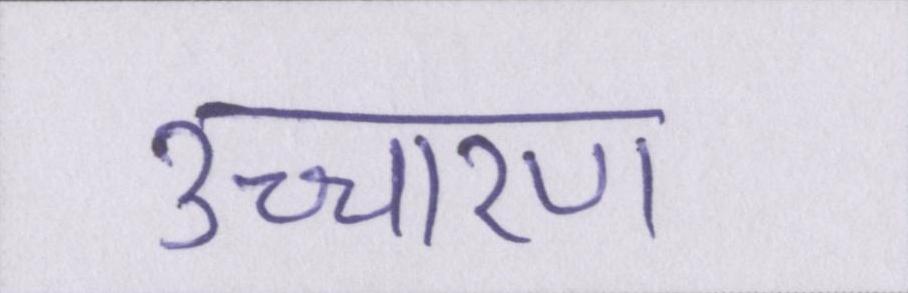 उच्चारण